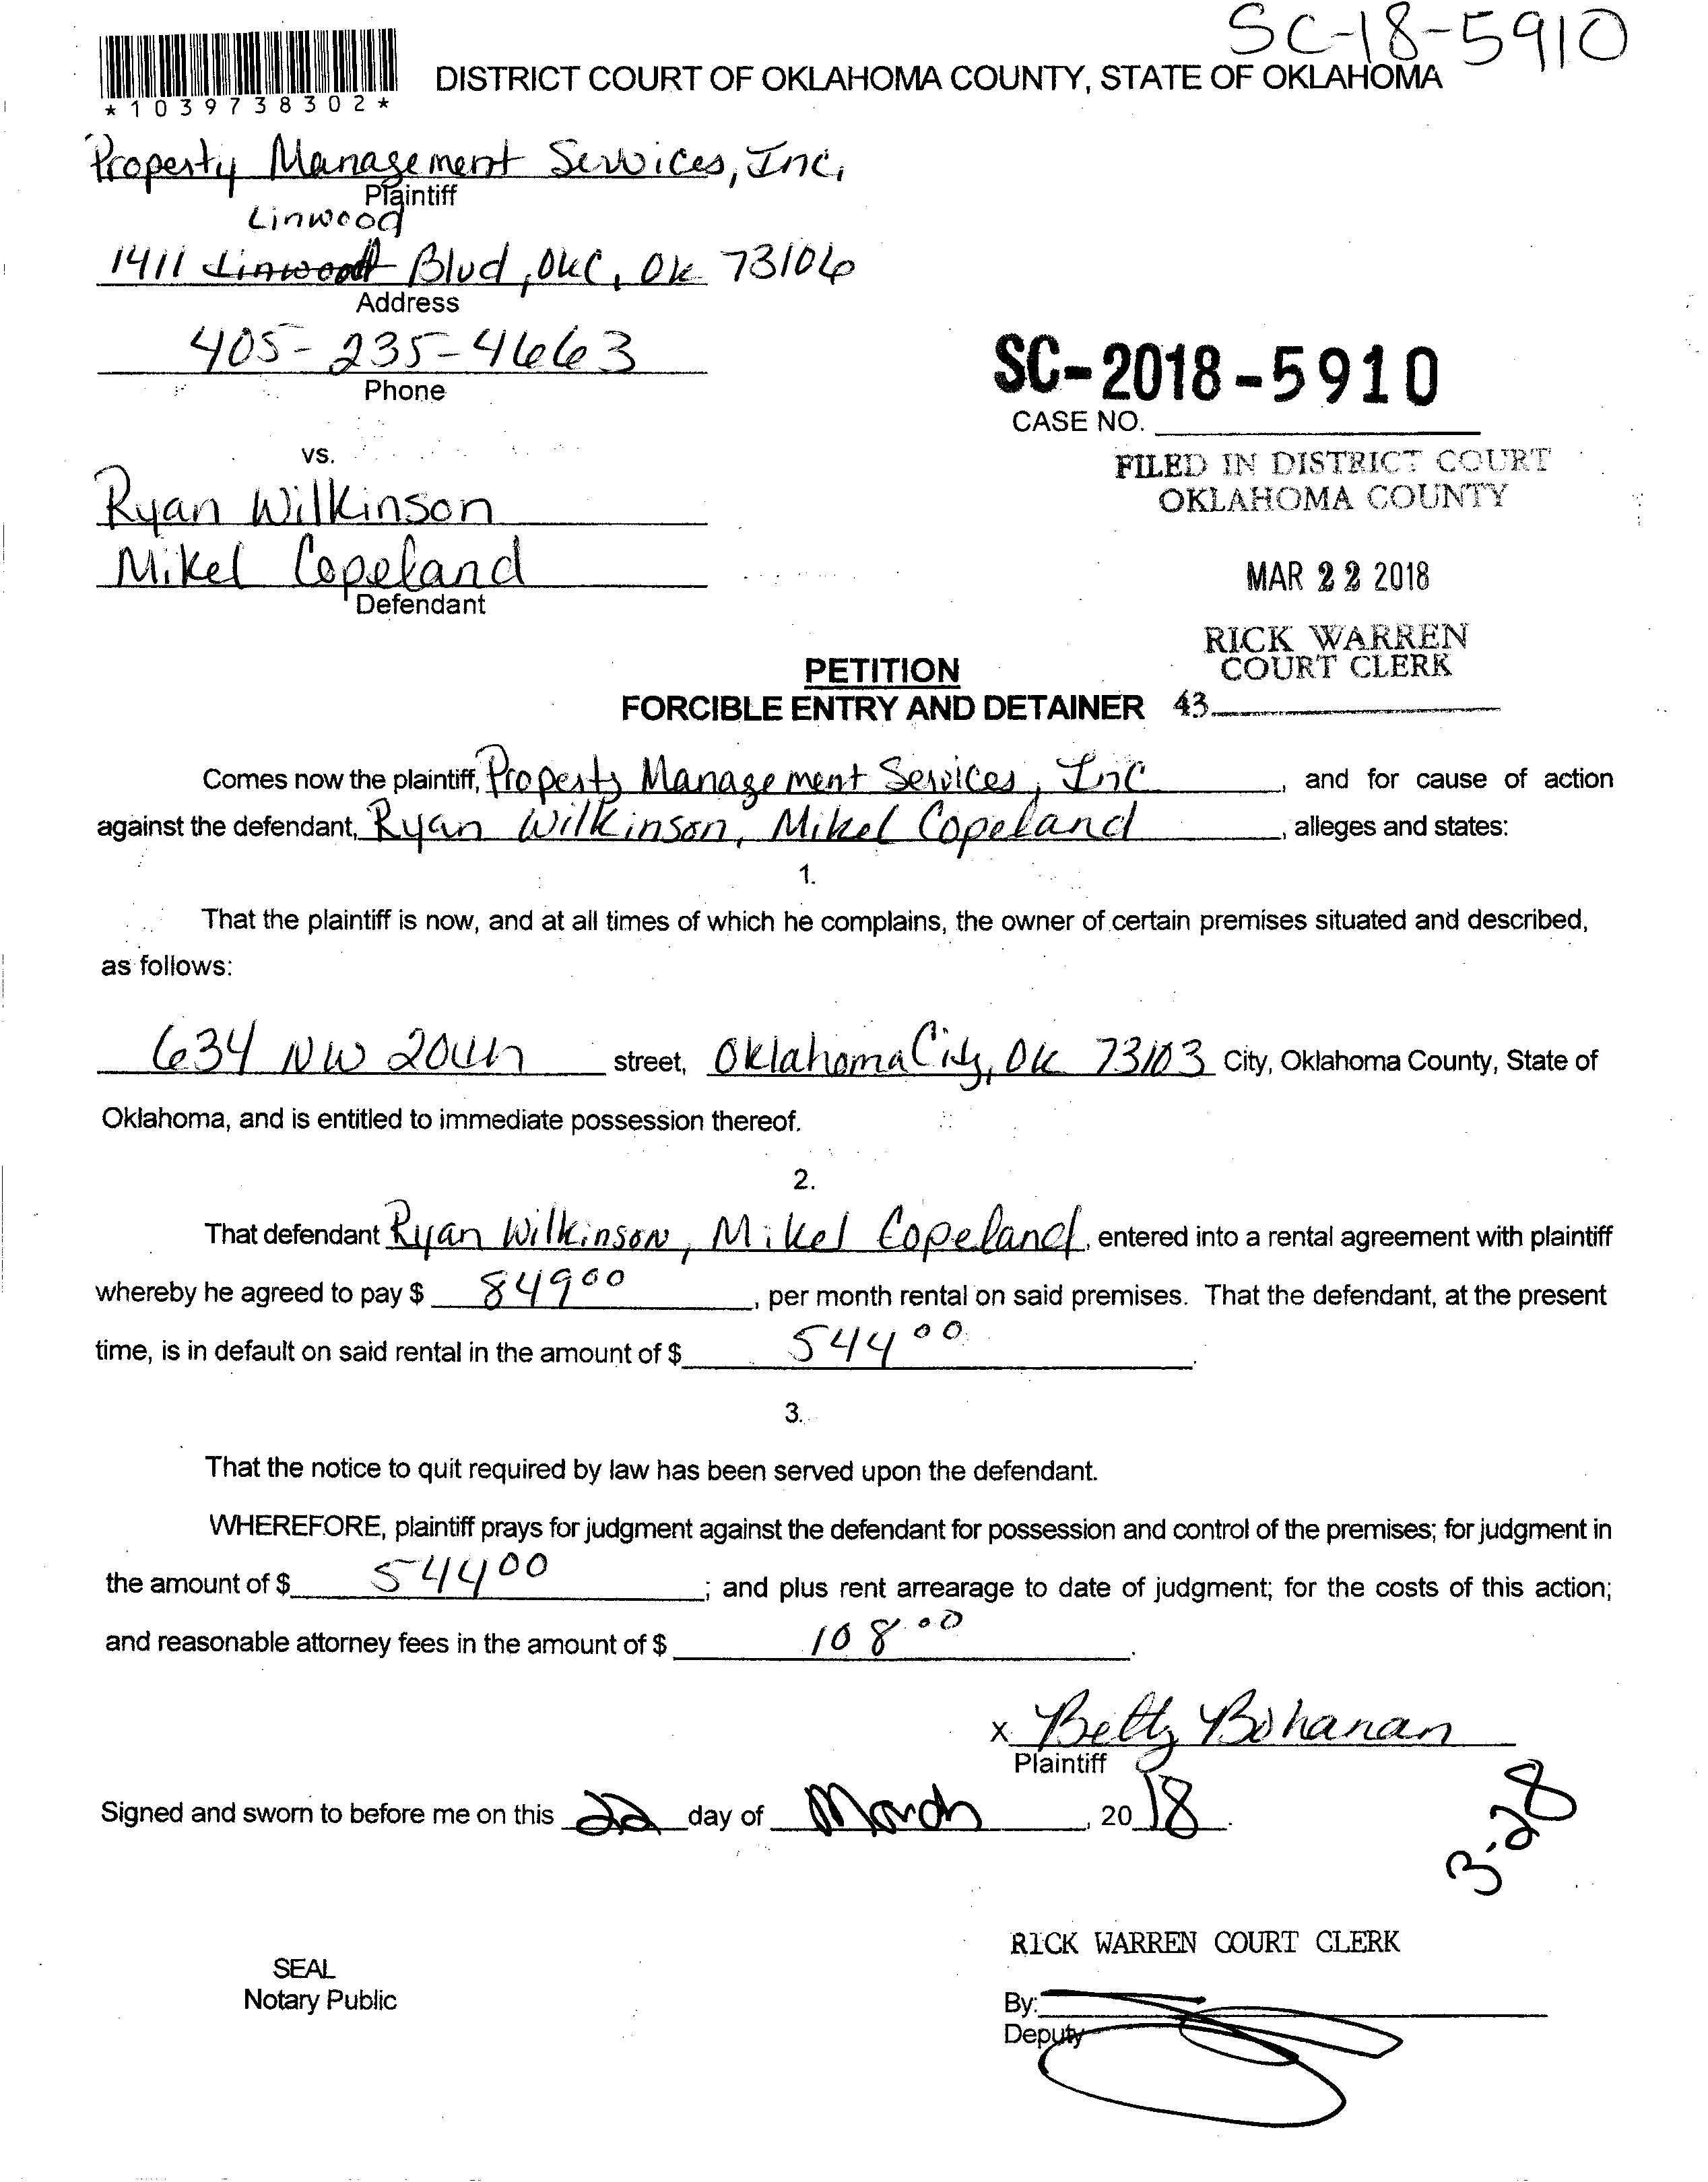 SC-18-5910
*1039738302*
DISTRICT COURT OF OKLAHOMA COUNTY, STATE OF OKLAHOMA
Property Management Services, Inc.
Plaintiff
Linwood
1411 Linwood Blvd, OKC, OK 73106
Address
405-235-4663
Phone
SC-2018-5910
CASE NO.
vs.
FILED IN DISTRICT COURT
OKLAHOMA COUNTY
Ryan Wilkinson
Mikel Copeland
Defendant
MAR 22 2018
RICK WARREN
COURT CLERK
PETITION
FORCIBLE ENTRY AND DETAINER
43
Comes now the plaintiff, Property Management Services, Inc, and for cause of action
against the defendant, Ryan Wilkinson, Mikel Copeland, alleges and states:
1.
That the plaintiff is now, and at all times of which he complains, the owner of certain premises situated and described,
as follows:
634 NW 20th street, Oklahoma City, OK 73103 City, Oklahoma County, State of
Oklahoma, and is entitled to immediate possession thereof.
2.
That defendant Ryan Wilkinson, Mikel Copeland, entered into a rental agreement with plaintiff
whereby he agreed to pay $ 849 00, per month rental on said premises. That the defendant, at the present
time, is in default on said rental in the amount of $ 544 00.
3.
That the notice to quit required by law has been served upon the defendant.
WHEREFORE, plaintiff prays for judgment against the defendant for possession and control of the premises; for judgment in
the amount of $ 544 00; and plus rent arrearage to date of judgment; for the costs of this action;
and reasonable attorney fees in the amount of $ 108.00.
x Betty Bohanan
Plaintiff
Signed and sworn to before me on this 22 day of March, 20 18.
3-28
RICK WARREN COURT CLERK
SEAL
Notary Public
By:
Deputy